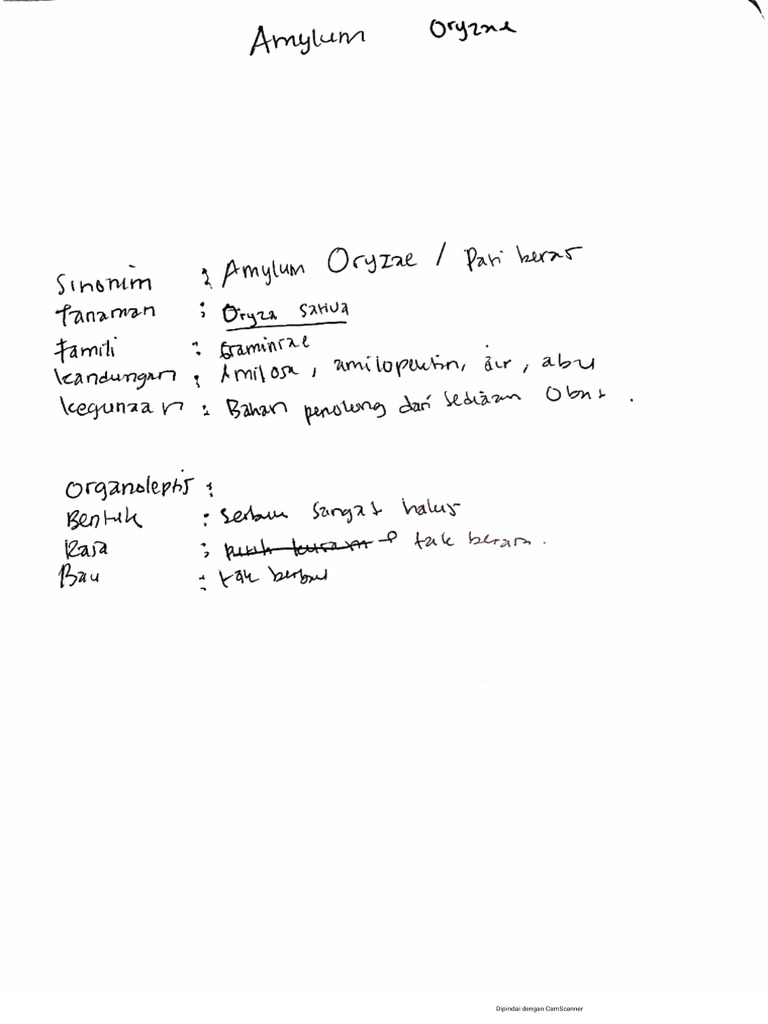 Amylum Oryzae
Sinonim : Amylum Oryzae / Pati beras
Tanaman : Oryza sativa
Famili : Graminrae
Kandungan : Amilosa, amilopektin, air, abu
Kegunaan : Bahan penolong dari sediaan Obat.
Organoleptis :
Bentuk : serbuk sangat halus
Rasa : putih kusam tak berasa.
Bau : tak berbau
Dipindai dengan CamScanner